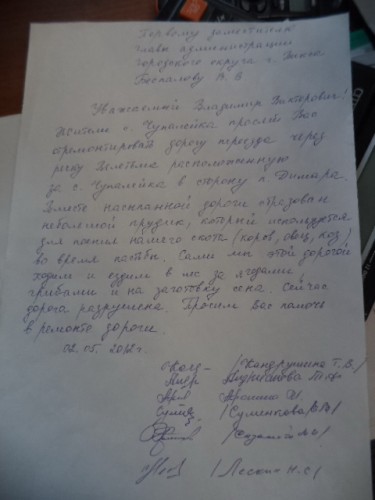 Первому заместителю
главы администрации
городского округа г. Выкса
Беспалову В. В
Уважаемый Владимир Викторович!
Жители с. Чупалейка просят Вас
отремонтировать дорогу переезда через
реку Велетьма расположенную
за с. Чупалейка в сторону п. Димара.
Вместе насыпанной дороги образован
небольшой прудик, который используется
для поения нашего скота (коров, овец, коз)
во время пастьбы. Сами мы этой дорогой
ходим и ездим в лес за ягодами,
грибами и на заготовку сена. Сейчас
дорога разрушена. Просим Вас помочь
в ремонте дороги.
02. 05. 2012 г.
/Кондрушина Т. В/
Арошина И.
/Суменкова В. В/
/Лескин Н. С/